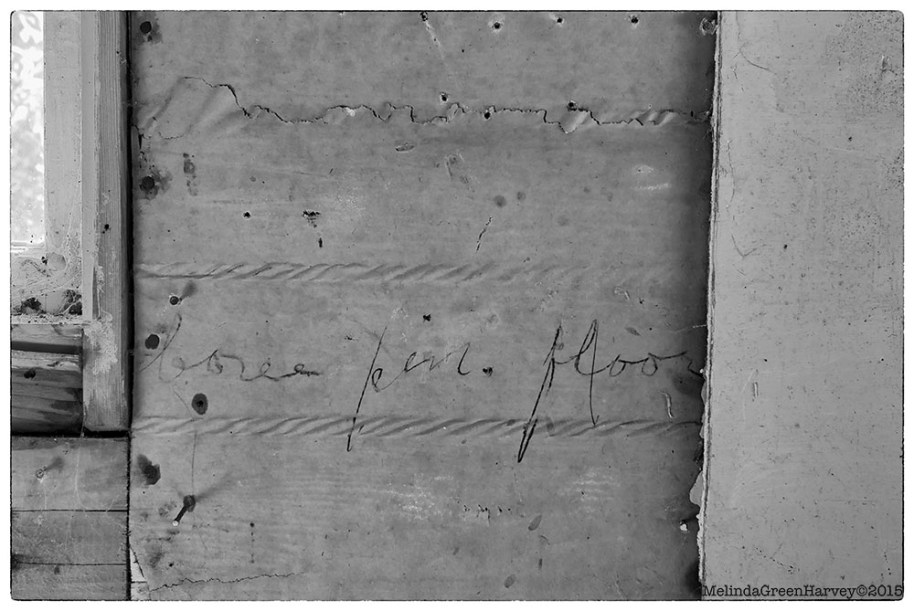 pen. floor
MelindaGreenHarvey©2015